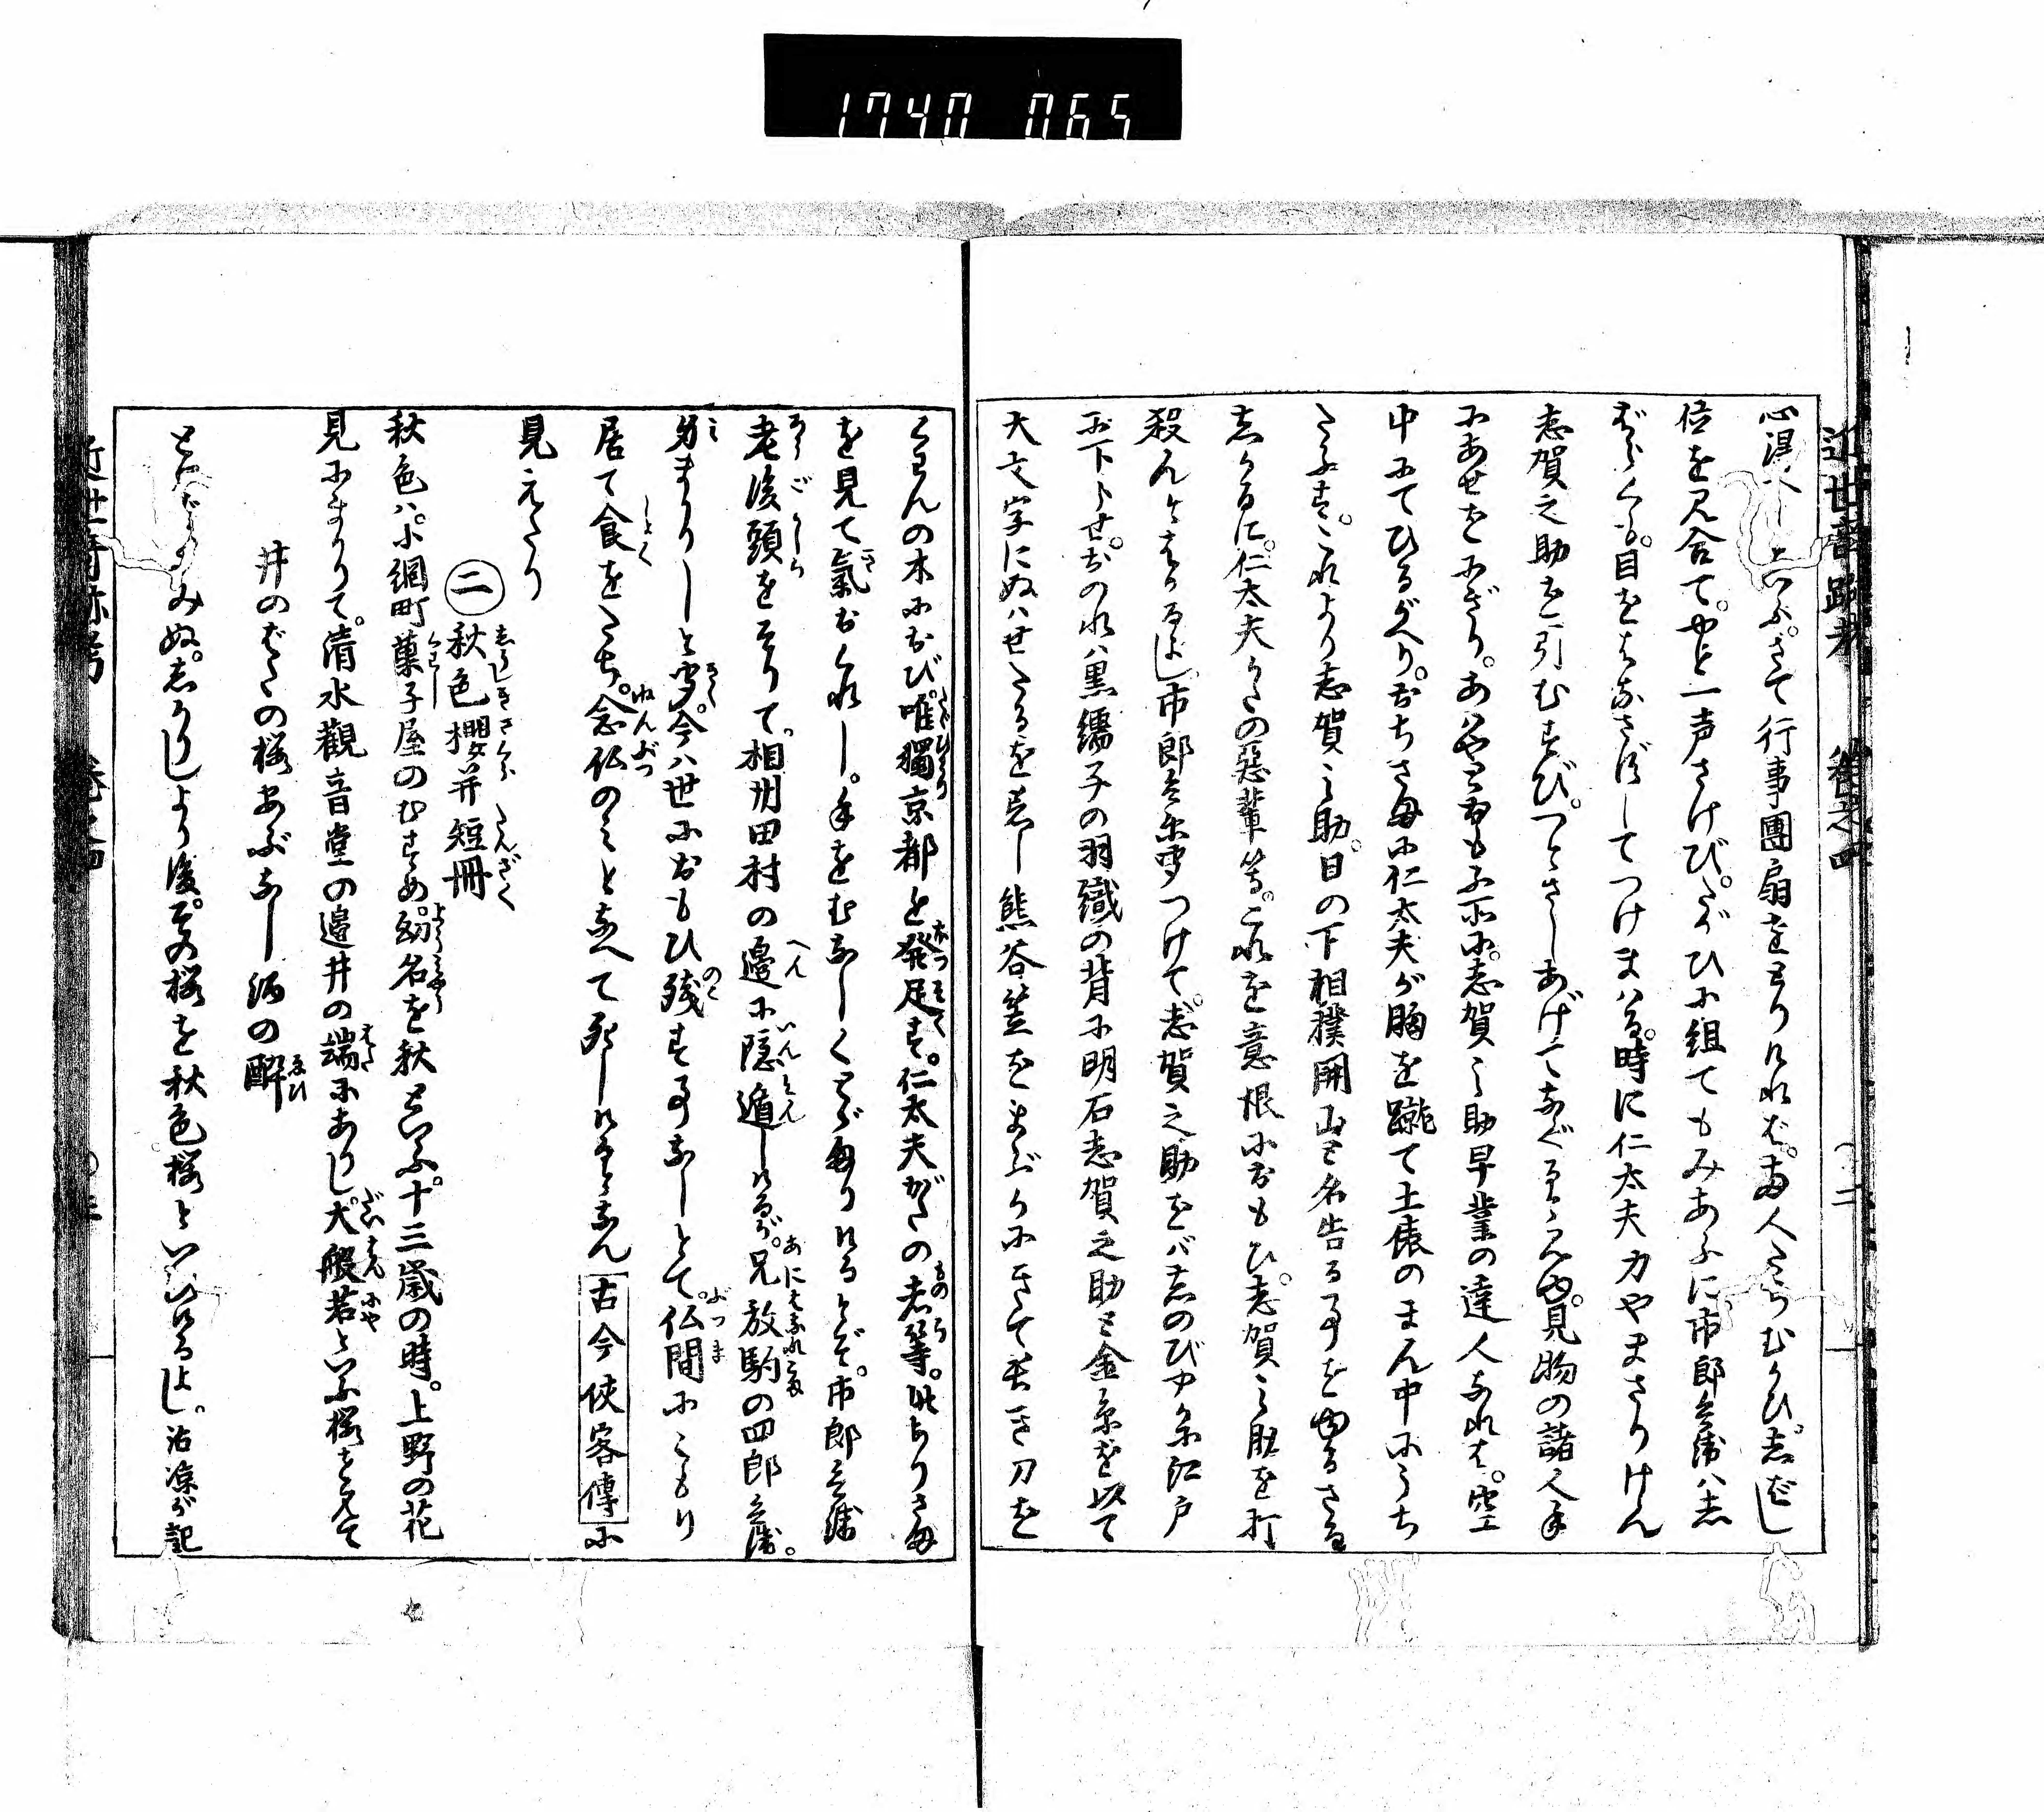 1740 065
近世奇跡考 巻之四
心得たりといふ。さて行事團扇をとりければ。両人たちむかひ。志ばし
位を見合て。やと一声さけび。たがひに組てもみあふに市郎兵衛ハ志
ばらくも。目をはなさずしてつけまハる。時に仁太夫力やまさりけん
志賀之助を引むすび。つとさしあげてなぐるにぞ。見物の諸人手
にあせをにぎり。あハやと
いふ所に。志賀之助早業の達人なれば。空
中にてひるがへり。おちさまに仁太夫が胸を蹴て土俵のまん中にうち
たふす。これより志賀之助。日の下相撲開山と名告る事をゆるさる
志かるに。仁太夫かたの惡輩等。これを意恨におもひ。志賀之助を打
殺んとはかるよし。市郎兵衛聞つけて。志賀之助をバ志のびやかに江戸
を下らせ。おのれハ黒繻子の羽織の背に明石志賀之助と金糸を以て
大文字にぬハせたるを着し熊谷笠をまぶかにきて長き刀を
くわんの木におび。唯獨京都を発足す。仁太夫がたの者等。此ありさま
を見て氣おくれし。手をむなしくしてぞ帰りけるとぞ。市郎兵衛
老後頭をそりて。相州田村の邊に隠遁しけるが。兄放駒の四郎兵衛。
身まかりしと聞。今ハ世におもひ残す事なしとて。仏間にこもり
居て食をたち。念仏のミとなへて死しけるとなん 古今侠客傳に
見えたり
㊁ 秋色櫻并短冊
秋色ハ。小網町菓子屋のむすめ。幼名を秋といふ。十三歳の時。上野の花
見にまかりて。清水觀音堂の邊井の端にありし大般若といふ櫻を見て
井のばたの桜あぶなし酒の酔
とよみぬ。志かりしより後。その桜を秋色桜といひけるよし。沾凉が記
近世奇跡考 巻之四